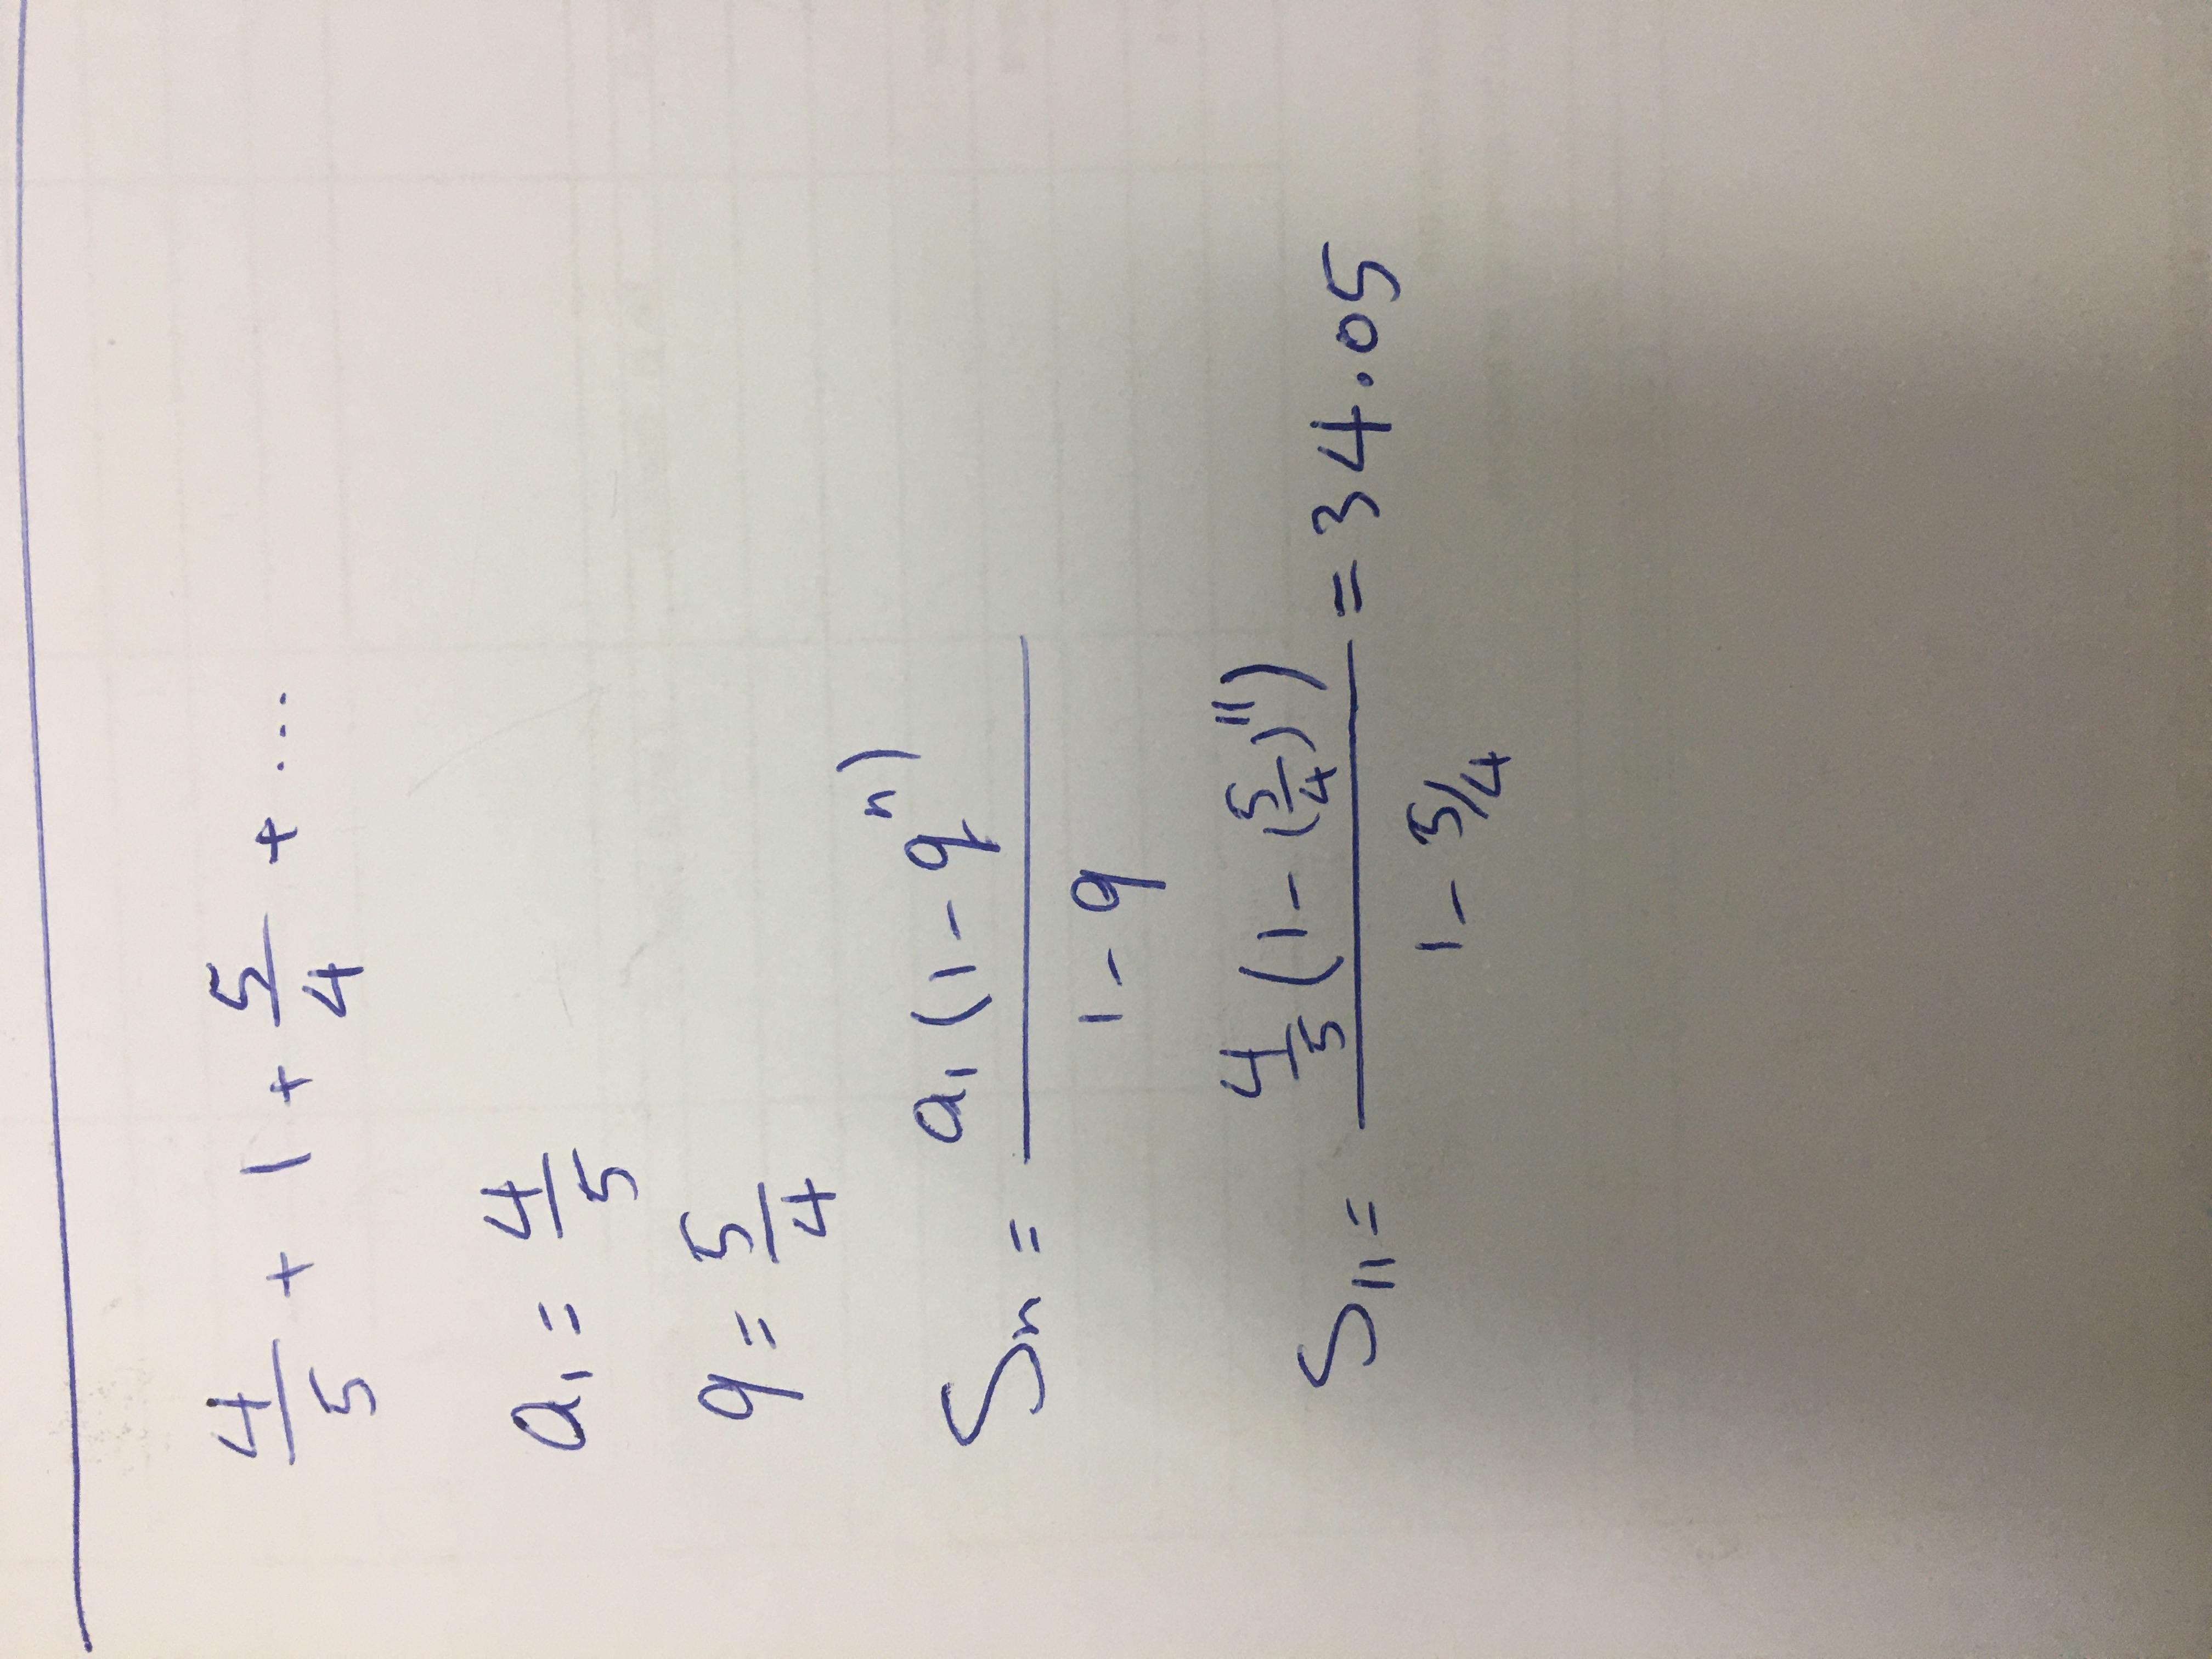 4/5 + 1 + 5/4 + ...
a₁ = 4/5
q = 5/4
Sn = a₁(1 - qⁿ) / 1 - q
S₁₁ = 4/5(1 - (5/4)¹¹) / 1 - 5/4 = 34.05